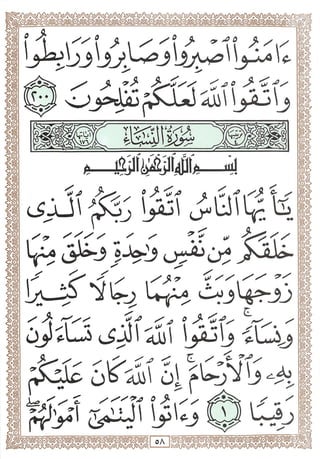 ءَامَنُوا۟ ٱصْبِرُوا۟ وَصَابِرُوا۟ وَرَابِطُوا۟
وَٱتَّقُوا۟ ٱللَّهَ لَعَلَّكُمْ تُفْلِحُونَ ٢٠٠
سُورَةُ النِّسَاءِ
بِسْمِ ٱللَّهِ ٱلرَّحْمَٰنِ ٱلرَّحِيمِ
يَٰٓأَيُّهَا ٱلنَّاسُ ٱتَّقُوا۟ رَبَّكُمُ ٱلَّذِى
خَلَقَكُم مِّن نَّفْسٍ وَٰحِدَةٍ وَخَلَقَ مِنْهَا
زَوْجَهَا وَبَثَّ مِنْهُمَا رِجَالًا كَثِيرًا
وَنِسَآءً ۚ وَٱتَّقُوا۟ ٱللَّهَ ٱلَّذِى تَسَآءَلُونَ
بِهِۦ وَٱلْأَرْحَامَ ۚ إِنَّ ٱللَّهَ كَانَ عَلَيْكُمْ
رَقِيبًا ١ وَءَاتُوا۟ ٱلْيَتَٰمَىٰٓ أَمْوَٰلَهُمْ ۖ
٥٨